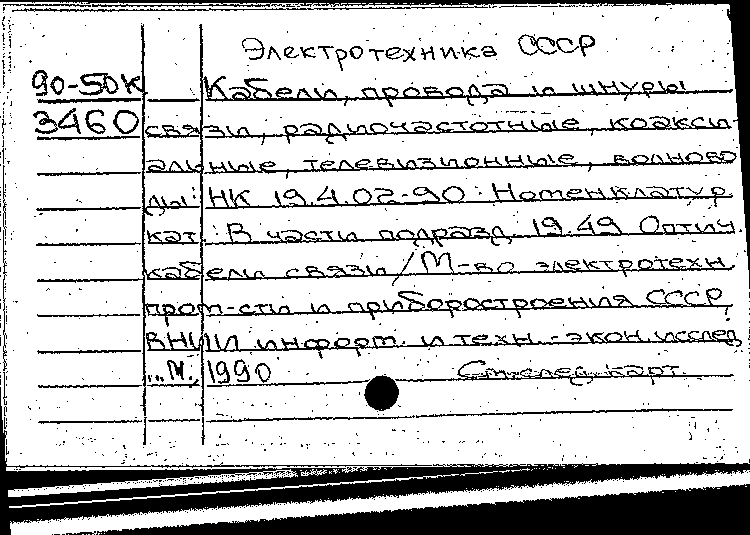 Электротехника СССР
90-50К Кабели, провода и шнуры
3460 связи, радиочастотные, коакси-
альные, телевизионные, волново
ды : НК 19.4.02-90 : Номенклатур.
кат. : В части подразд. 19.49 Оптич.
кабели связи / М-во электротехн.
пром-сти и приборостроения СССР,
ВНИИ информ. и техн.-экон. исслед.
...М., 1990 См. след. карт.